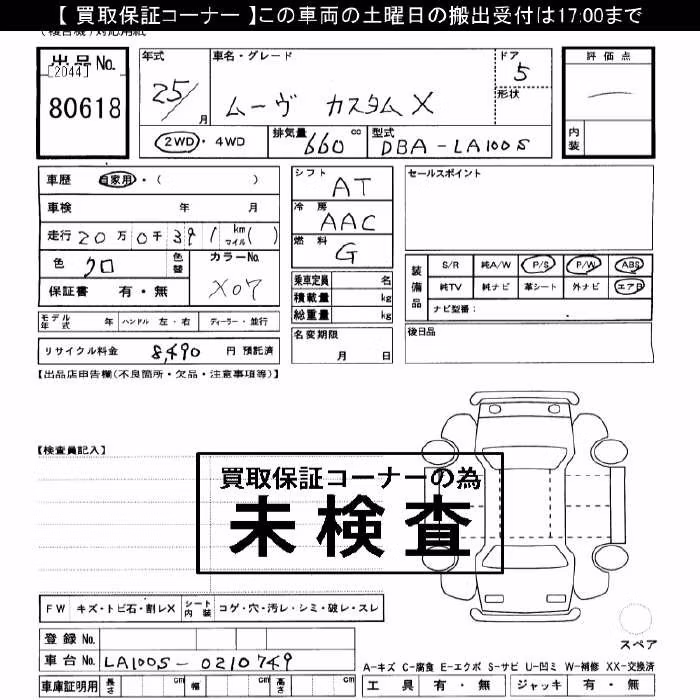 【 買取保証コーナー 】この車両の土曜日の搬出受付は17:00まで
出品No.
[2044]
80618
年式
25/
月
車名・グレード
ムーヴ カスタムX
ドア
5
形状
評価点
内装
2WD・4WD
排気量
660 cc
型式
DBA-LA100S
車歴 自家用・( )
車検 年 月
走行 20万0千391 km マイル( )
色 クロ
色替
カラーNo.
X07
保証書 有・無
シフト
AT
冷房
AAC
燃料
G
乗車定員 名
積載量 kg
総重量 kg
名変期限
月 日
セールスポイント
装備品
S/R 純A/W P/S P/W ABS
純TV 純ナビ 革シート 外ナビ エアB
ナビ型番:
後日品
モデル年式 年 ハンドル 左・右 ディーラー・並行
リサイクル料金 8,490 円 預託済
【出品店申告欄(不良箇所・欠品・注意事項等)】
【検査員記入】
買取保証コーナーの為
未検査
FW キズ・トビ石・割レX シート内装 コゲ・穴・汚レ・シミ・破レ・スレ
登録No.
車台No. LA100S-0210749
車庫証明用 長さ cm 幅 cm 高さ cm
スペア
A-キズ C-腐食 E-エクボ S-サビ U-凹ミ W-補修 XX-交換済
工具 有・無 ジャッキ 有・無